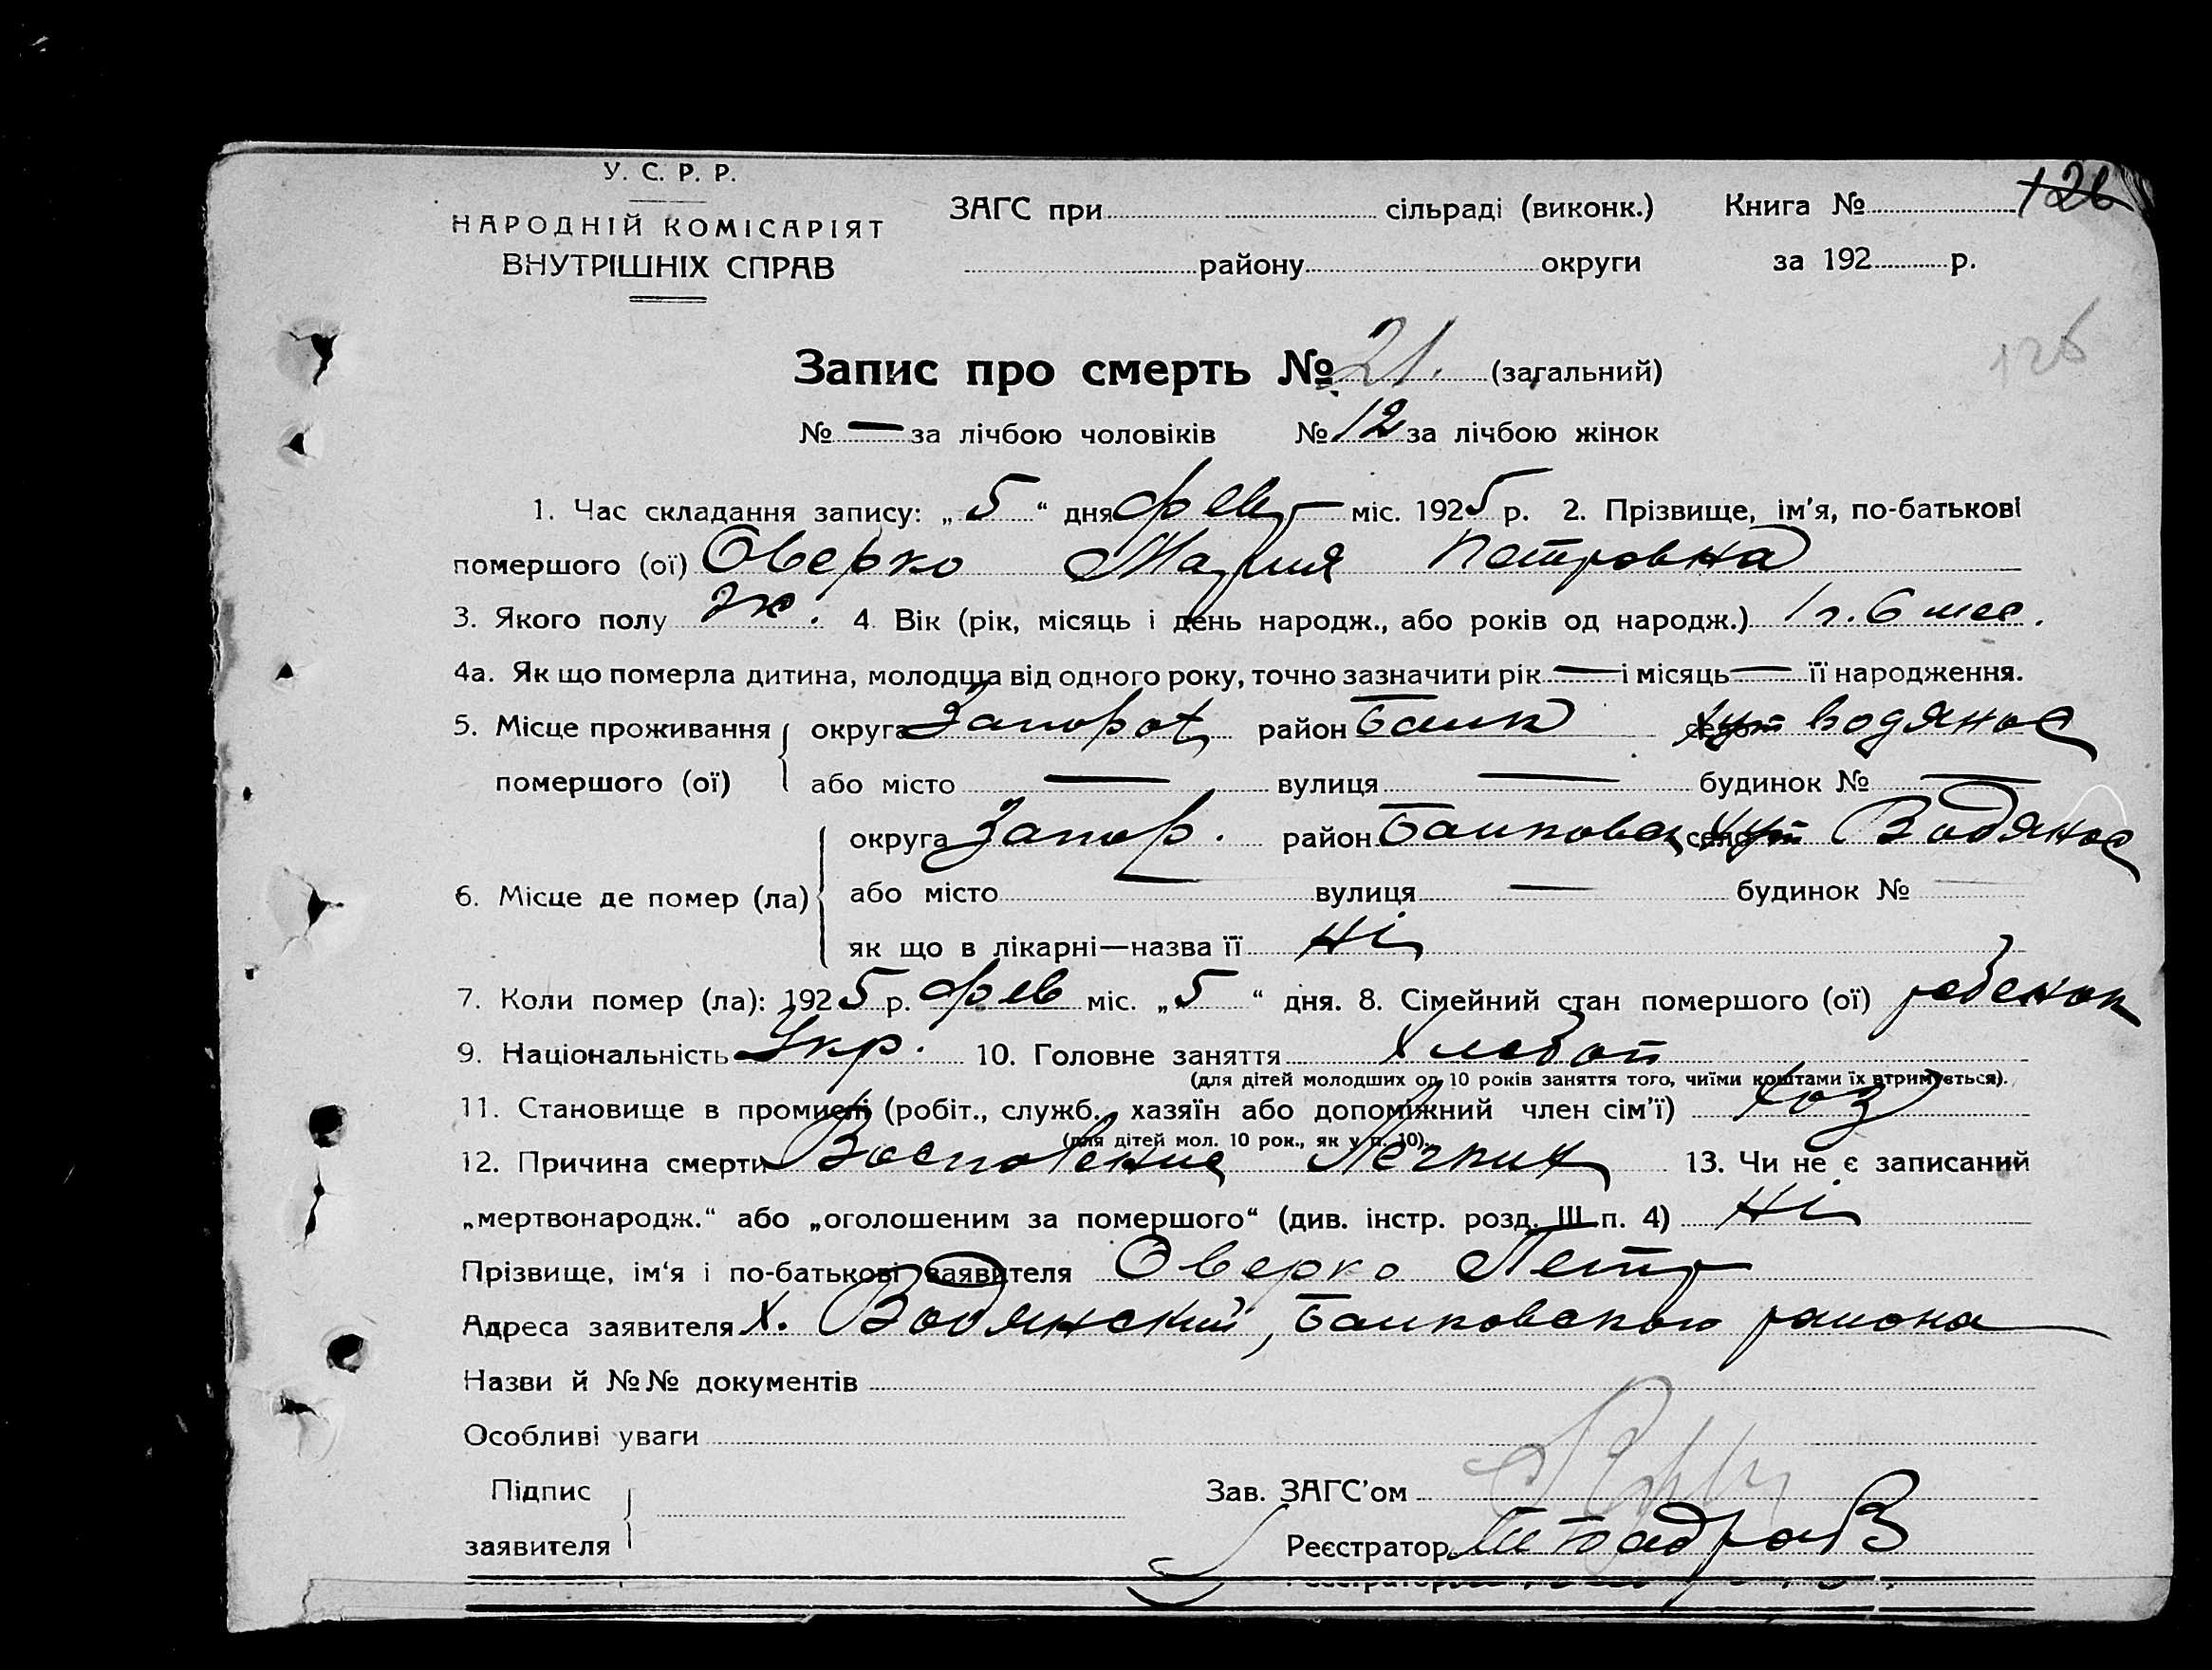 У. С. Р. Р.
НАРОДНІЙ КОМІСАРІЯТ
ВНУТРІШНІХ СПРАВ
ЗАГС при сільраді (виконк.) Книга № 126
району округи за 192 р.
126
Запис про смерть № 21. (загальний)
№ — за лічбою чоловіків № 12 за лічбою жінок
1. Час складання запису: „5“ дня фев міс. 1925 р. 2. Прізвище, ім'я, по-батькові
помершого (ої) Оверко Мария Петровна
3. Якого полу ж. 4. Вік (рік, місяць і день народж., або років од народж.) 1 г. 6 мес.
4а. Як що померла дитина, молодща від одного року, точно зазначити рік — і місяць — її народження.
5. Місце проживання округа Запорож район Башк хут Водяное
помершого (ої) або місто — вулиця — будинок № —
округа Запор. район Башковец село хут Водяное
6. Місце де помер (ла) або місто — вулиця — будинок № —
як що в лікарні—назва її Ні
7. Коли помер (ла): 1925 р. фев міс. „5“ дня. 8. Сімейний стан помершого (ої) ребенок
9. Національність Укр. 10. Головне заняття Хлебоп
(для дітей молодших од 10 років заняття того, чиїми коштами їх втримується).
11. Становище в промислі (робіт., служб., хазяїн або допоміжний член сім'ї) хоз
(для дітей мол. 10 рок., як у п. 10).
12. Причина смерти Воспаление Легких 13. Чи не є записаний
„мертвонародж.“ або „оголошеним за помершого“ (див. інстр. розд. III п. 4) Ні
Прізвище, ім'я і по-батькові заявителя Оверко Петр
Адреса заявителя х. Водянский, Башковского района
Назви й №№ документів
Особливі уваги
Підпис Зав. ЗАГС'ом
заявителя Реєстратор